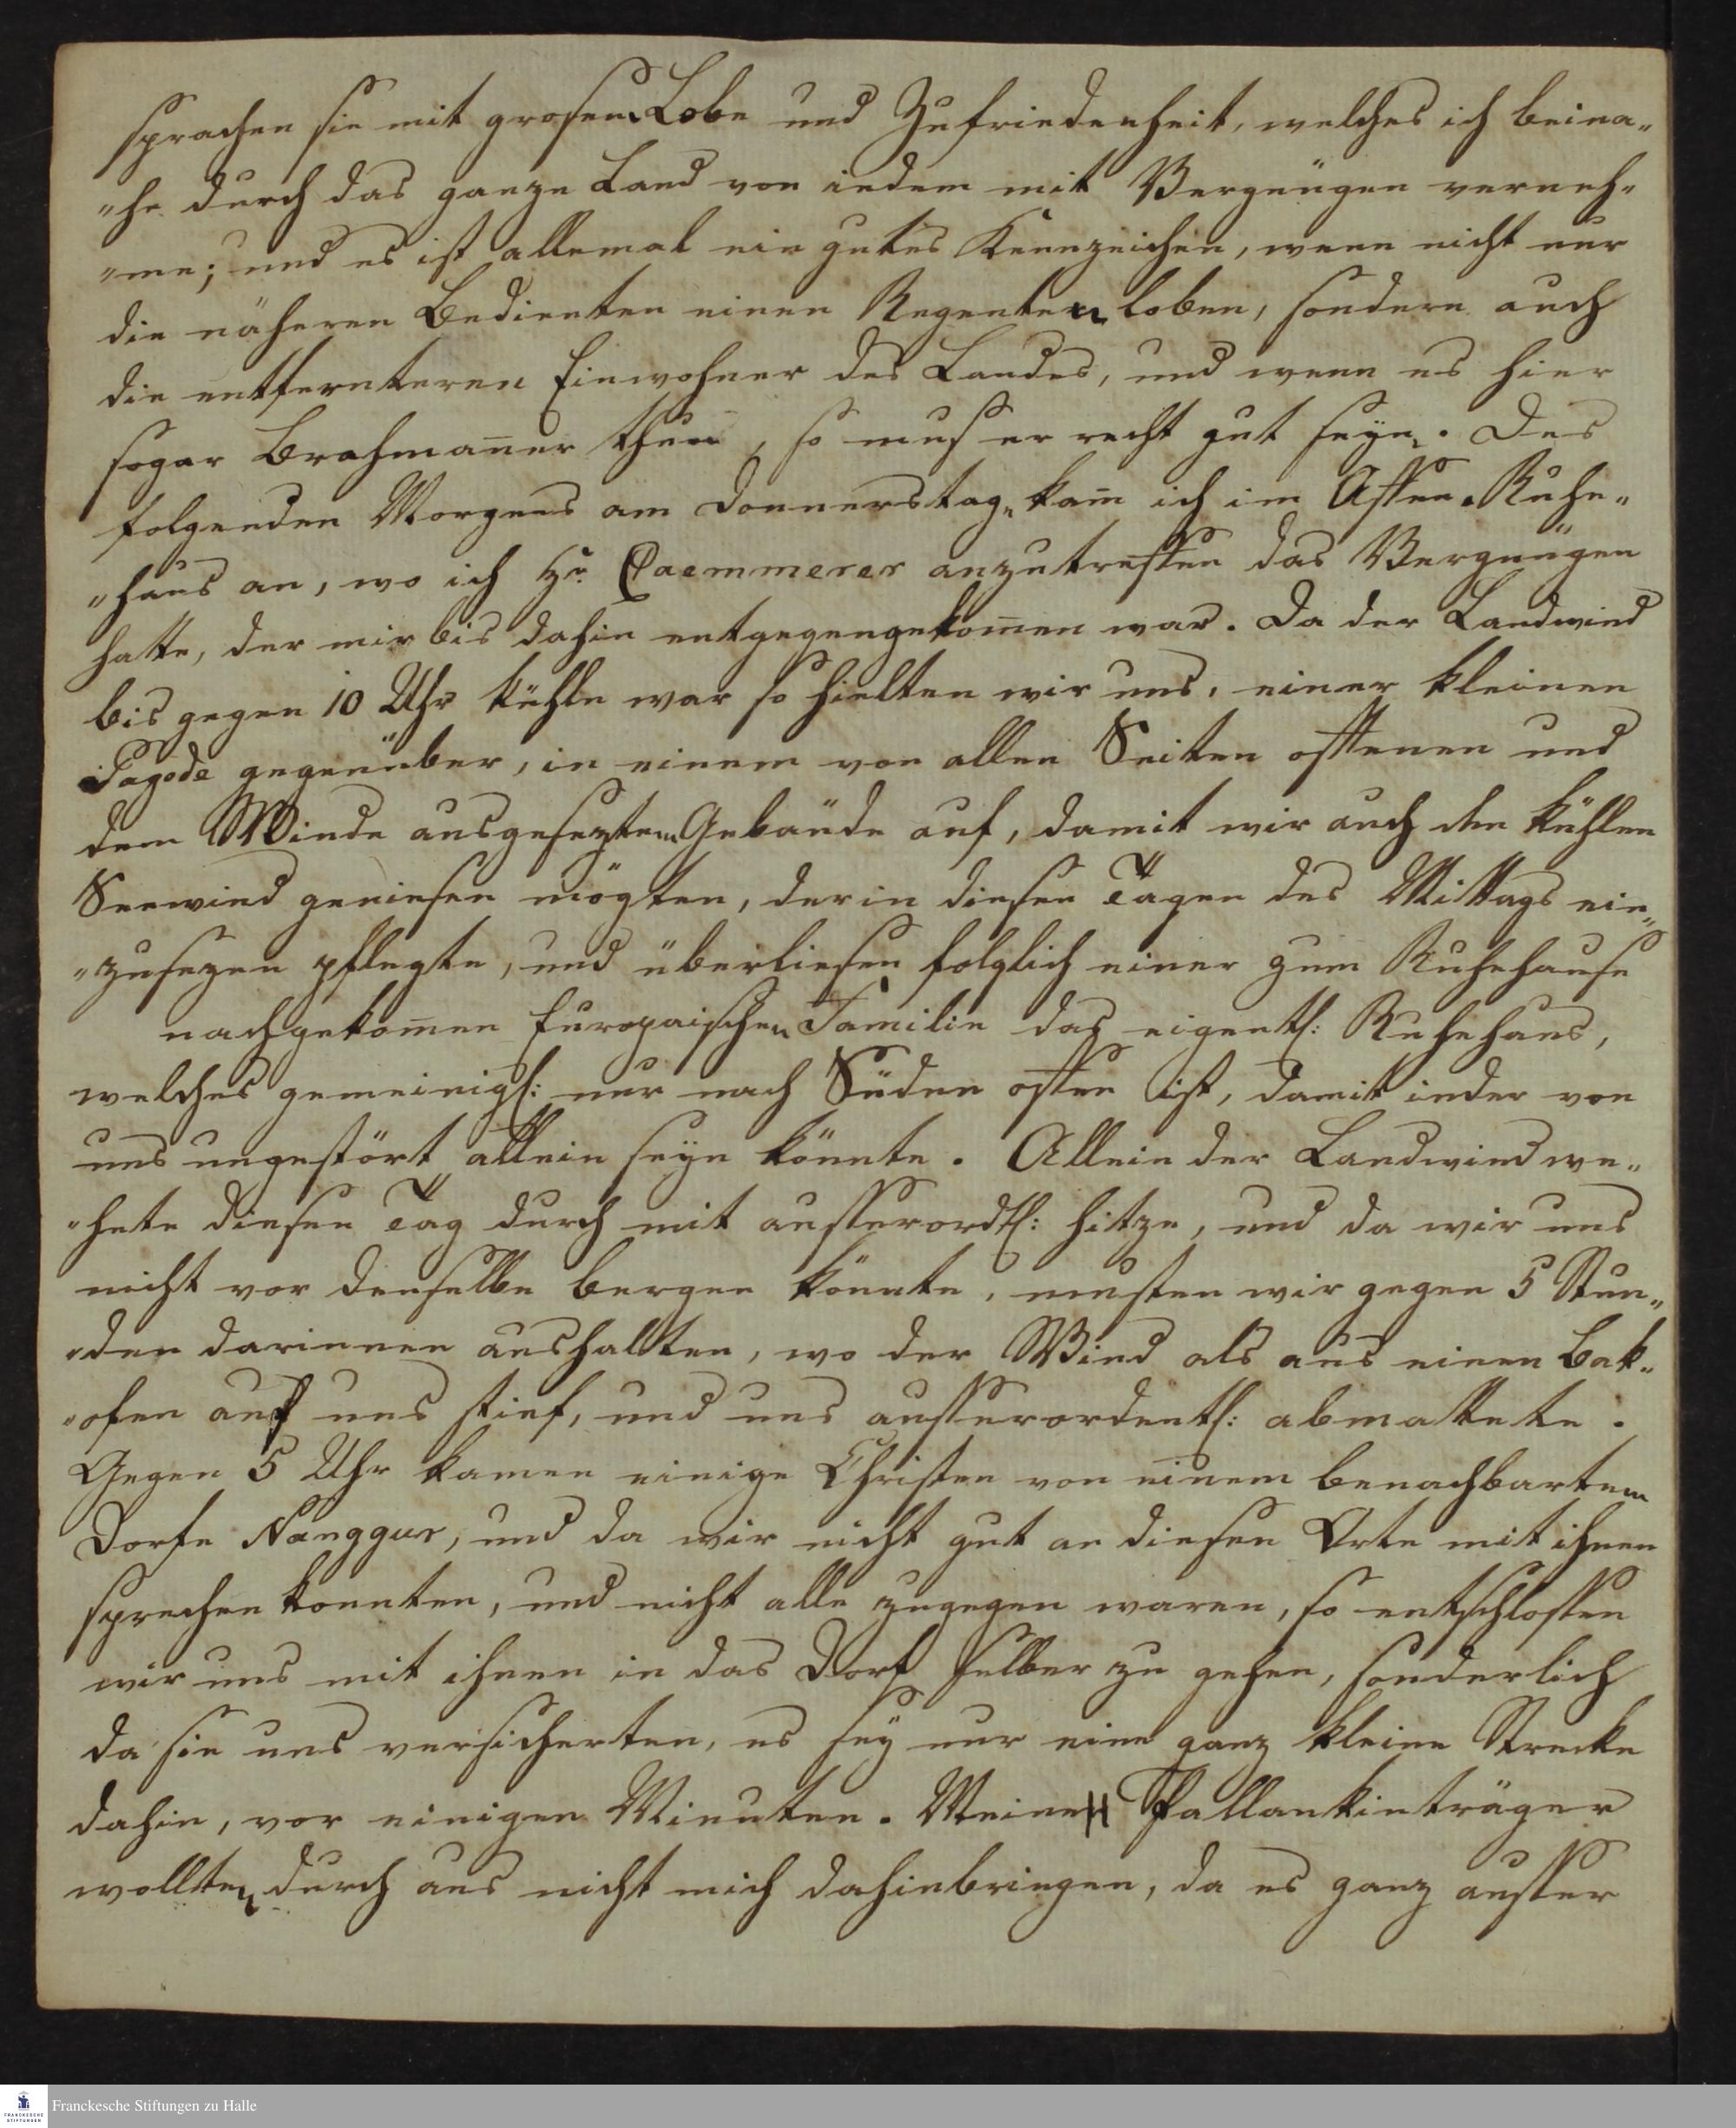 sprachen sie mit grosem Lobe und Zufriedenheit, welches ich beina„
„he durch das ganze Land von iedem mit Vergnügen verneh„
„me; und es ist allemal ein gutes Kennzeichen, wenn nicht nur
die näheren Bedienten einen Regenten loben, sondern auch
die entfernteren Einwohner des Landes, und wenn es hier
sogar Brahmañer thun, so muß er recht gut seyn. Des
folgenden Morgens am Donnerstag, kam̃ ich im Affen Ruhe„
„haus an, wo ich Hr. Caemmerer anzutreffen das Vergnügen
hatte, der mir bis dahin entgegengekom̃en war. Da der Landwind
bis gegen 10 Uhr kühle war so hielten wir uns, einer kleinen
Pagode gegenüber, in einem von allen Seiten offenen und
dem Winde ausgesezten Gebäude auf, damit wir auch den kühlen
Seewind geniesen mögten, der in diesen Tagen des Mittags ein„
„zusezen pflegte, und überliesen folglich einer zum Ruhehause
nachgekom̃en Europaischen Familie das eigentl: Ruhehaus,
welches gemeinigl: nur nach Süden offen ist, damit ieder von
uns ungestört allein seyn könnte. Allein der Landwind we„
„hete diesen Tag durch mit ausserordtl: Hitze, und da wir uns
nicht vor denselbe bergen könnte, musten wir gegen 5 Stun„
„den darinnen aushallten, wo der Wind als aus einen Bak„
„ofen auf uns sties, und uns ausserordentl: abmattete.
Gegen 5 Uhr kamen einige Christen von einem benachbarten
Dorfe Nanggur, und da wir nicht gut an diesen Orte mit ihnen
sprechen konnten, und nicht alle zugegen waren, so entschlossen
wir uns mit ihnen in das Dorf selber zu gehen, sonderlich
da sie uns versicherten, es sey nur eine ganz kleine Strecke
dahin, vor einigen Minuten. Meine Pallankinträger
wollten durch aus nicht mich dahinbringen, da es ganz ausser
Franckesche Stiftungen zu Halle